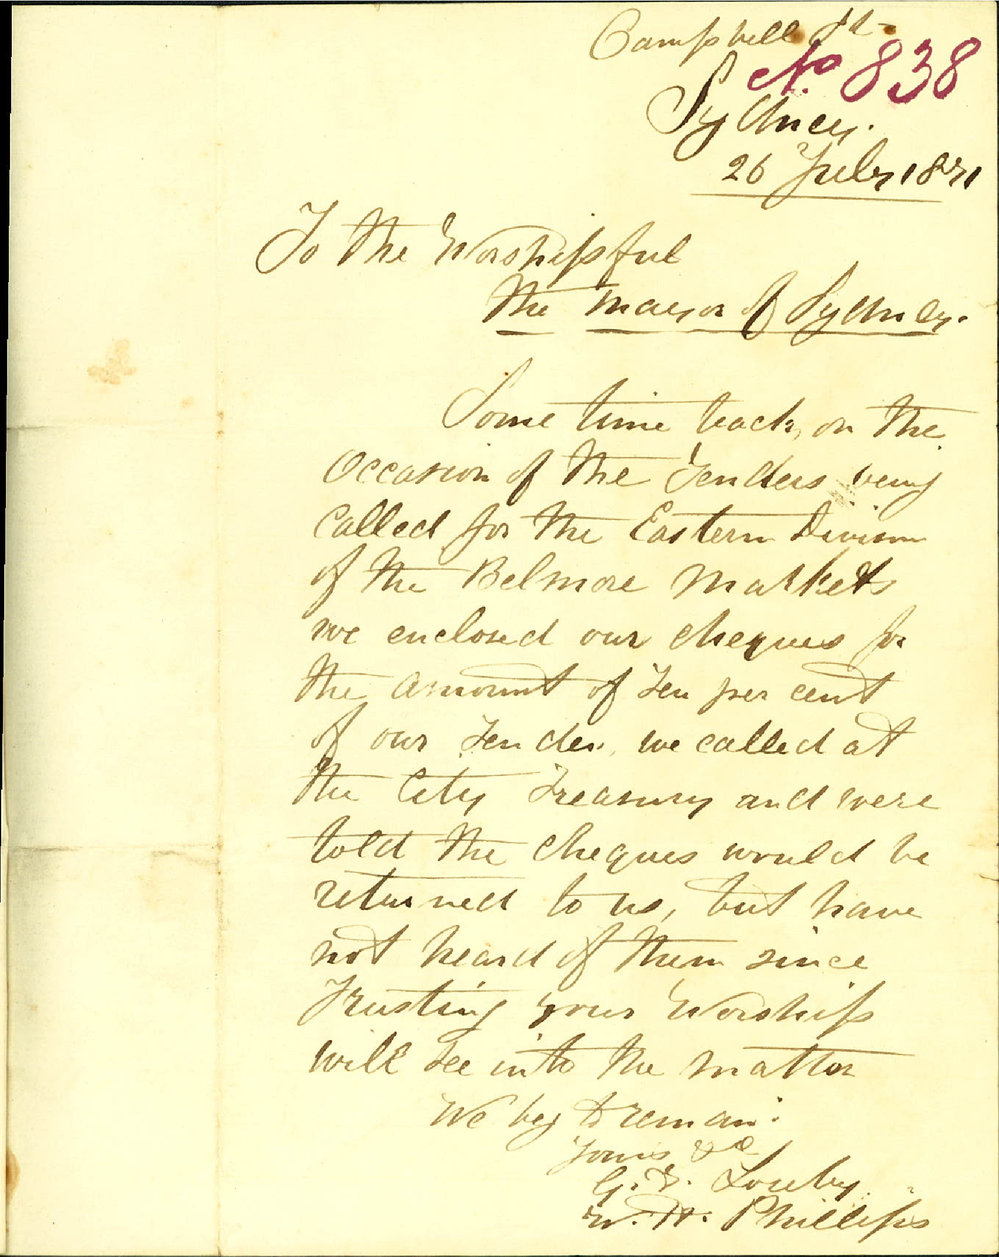 Campbell St.
No. 838
Sydney.
26 July 1871
To the Worshipful
The Mayor of Sydney.
Some time back, on the
Occasion of the Tenders being
Called for the Eastern Division
of the Belmore Markets
we enclosed our cheques for
the amount of Ten per cent
of our Tender, we called at
the City Treasury and were
told the Cheques would be
returned to us, but have
not heard of them since
Trusting your Worship
will see into the matter
We beg to remain
Yours &c
G. F. Louby
W. H. Phillips